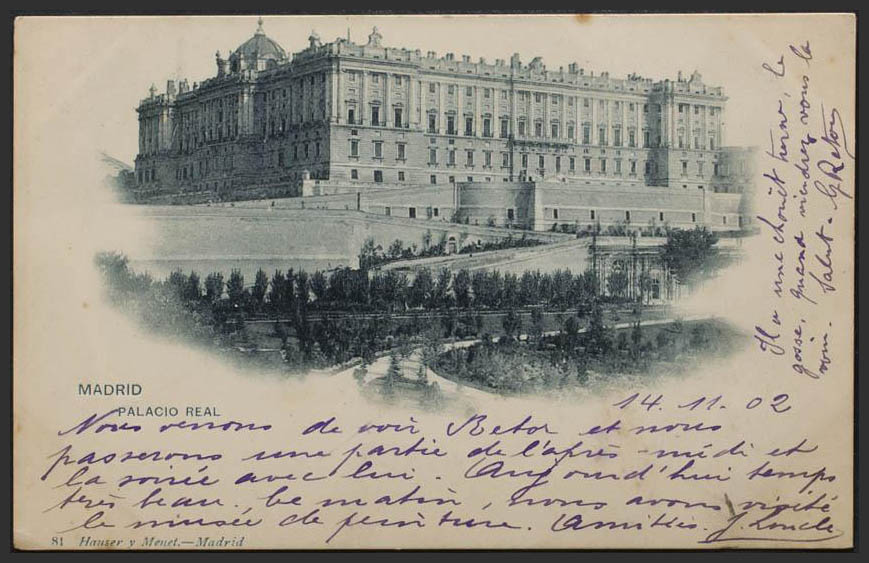 MADRID
PALACIO REAL
14. 11. 02
Nous venons de voir Retor et nous
passerons une partie de l'après-midi et
la soirée avec lui. Aujourd'hui temps
très beau. Ce matin, nous avons visité
le musée de peinture. Amitiés.
81 Hauser y Menet.—Madrid
Il a une chouette turne, le
gosse, quand viendrez vous la
voir. Salut.